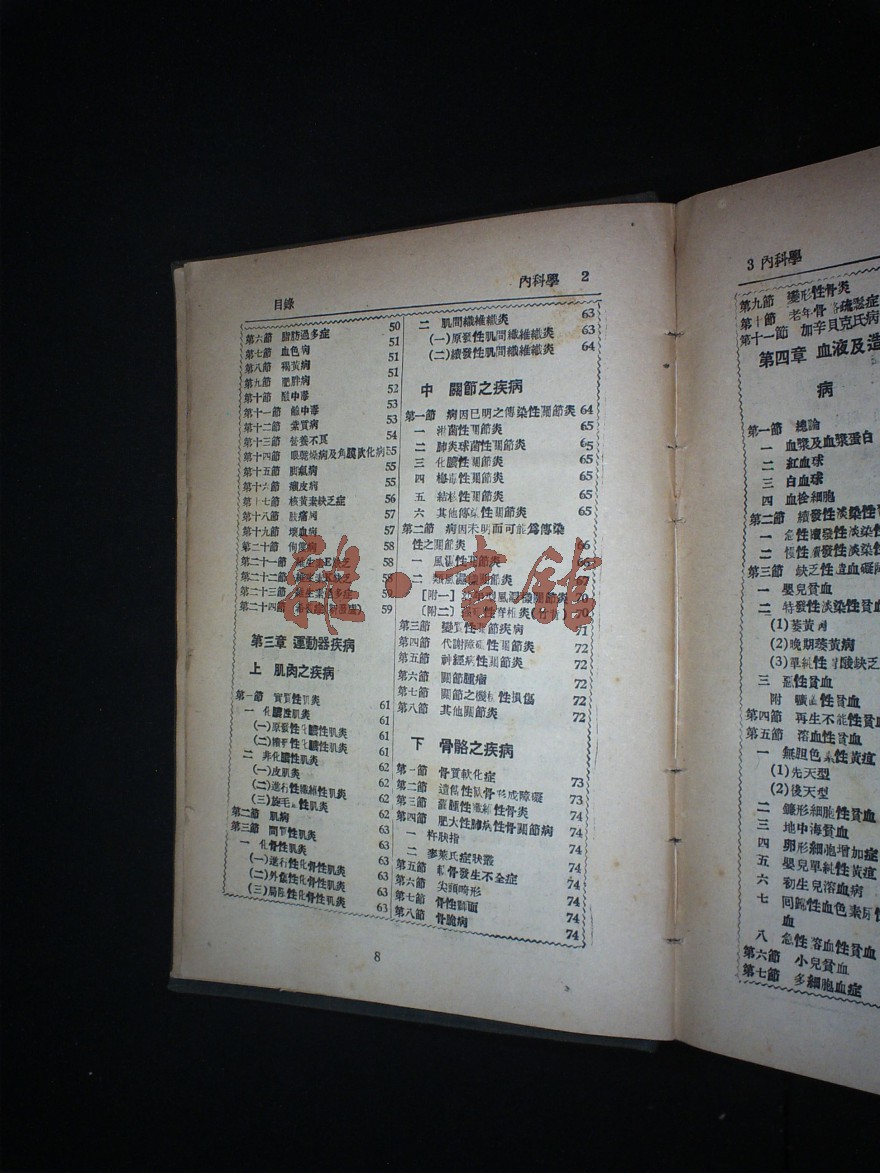 目錄
內科學 2
第六節 脂肪過多症 50
第七節 血色病 51
第八節 褐黃病 51
第九節 肥胖病 51
第十節 酸中毒 52
第十一節 鹼中毒 53
第十二節 棄質病 53
第十三節 營養不良 54
第十四節 眼乾燥病及角膜軟化病 55
第十五節 脚氣病 55
第十六節 癩皮病 55
第十七節 核黃素缺乏症 56
第十八節 57
第十九節 壞血病 57
第二十節 佝僂病 58
第二十一節 58
第二十二節 58
第二十三節 維生素過多症 59
第二十四節 59
第三章 運動器疾病
上 肌肉之疾病
第一節 實質性肌炎 61
一 化膿性肌炎 61
(一)原發性化膿性肌炎 61
(二)續發性化膿性肌炎 61
二 非化膿性肌炎 62
(一)皮肌炎 62
(二)進行性纖維性肌炎 62
(三)旋毛蟲性肌炎 62
第二節 肌病 62
第三節 間質性肌炎 63
一 化骨性肌炎 63
(一)進行性化骨性肌炎 63
(二)外傷性化骨性肌炎 63
(三)局限性化骨性肌炎 63
二 肌間纖維織炎 63
(一)原發性肌間纖維織炎 63
(二)續發性肌間纖維織炎 64
中 關節之疾病
第一節 病因已明之傳染性關節炎 64
一 淋菌性關節炎 65
二 肺炎球菌性關節炎 65
三 化膿性關節炎 65
四 梅毒性關節炎 65
五 結核性關節炎 65
六 其他傳染性關節炎 65
第二節 病因未明而可能爲傳染
性之關節炎 66
一 風濕性關節炎 66
二 類風濕性關節炎 67
[附一] 70
[附二] 70
第三節 變質性關節疾病 71
第四節 代謝障礙性關節炎 72
第五節 神經病性關節炎 72
第六節 關節腫瘤 72
第七節 關節之機械性損傷 72
第八節 其他關節炎 72
下 骨骼之疾病
第一節 骨質軟化症 73
第二節 遺傳性骨形成障礙 73
第三節 囊腫性纖維性骨炎 74
第四節 肥大性肺病性骨關節病 74
一 杵狀指 74
二 麥萊氏症狀叢 74
第五節 軟骨發生不全症 74
第六節 尖頭畸形 74
第七節 骨性獅面 74
第八節 骨脆病 74
8
3 內科學
第九節 變形性骨炎
第十節 老年骨骼疏鬆症
第十一節 加辛貝克氏病
第四章 血液及造
病
第一節 總論
一 血漿及血漿蛋白
二 紅血球
三 白血球
四 血栓細胞
第二節 續發性淡染性
一 急性續發性淡染性
二 慢性續發性淡染性
第三節 缺乏性造血障
一 嬰兒貧血
二 特發性淡染性貧血
(1)萎黃病
(2)晚期萎黃病
(3)單純性胃酸缺乏
三 惡性貧血
附 曠血性貧血
第四節 再生不能性貧血
第五節 溶血性貧血
一 無胆色素性黃疸
(1)先天型
(2)後天型
二 鐮形細胞性貧血
三 地中海貧血
四 卵形細胞增加症
五 嬰兒單純性黃疸
六 初生兒溶血病
七
血
八 急性溶血性貧血
第六節 小兒貧血
第七節 多細胞血症
雜·書館